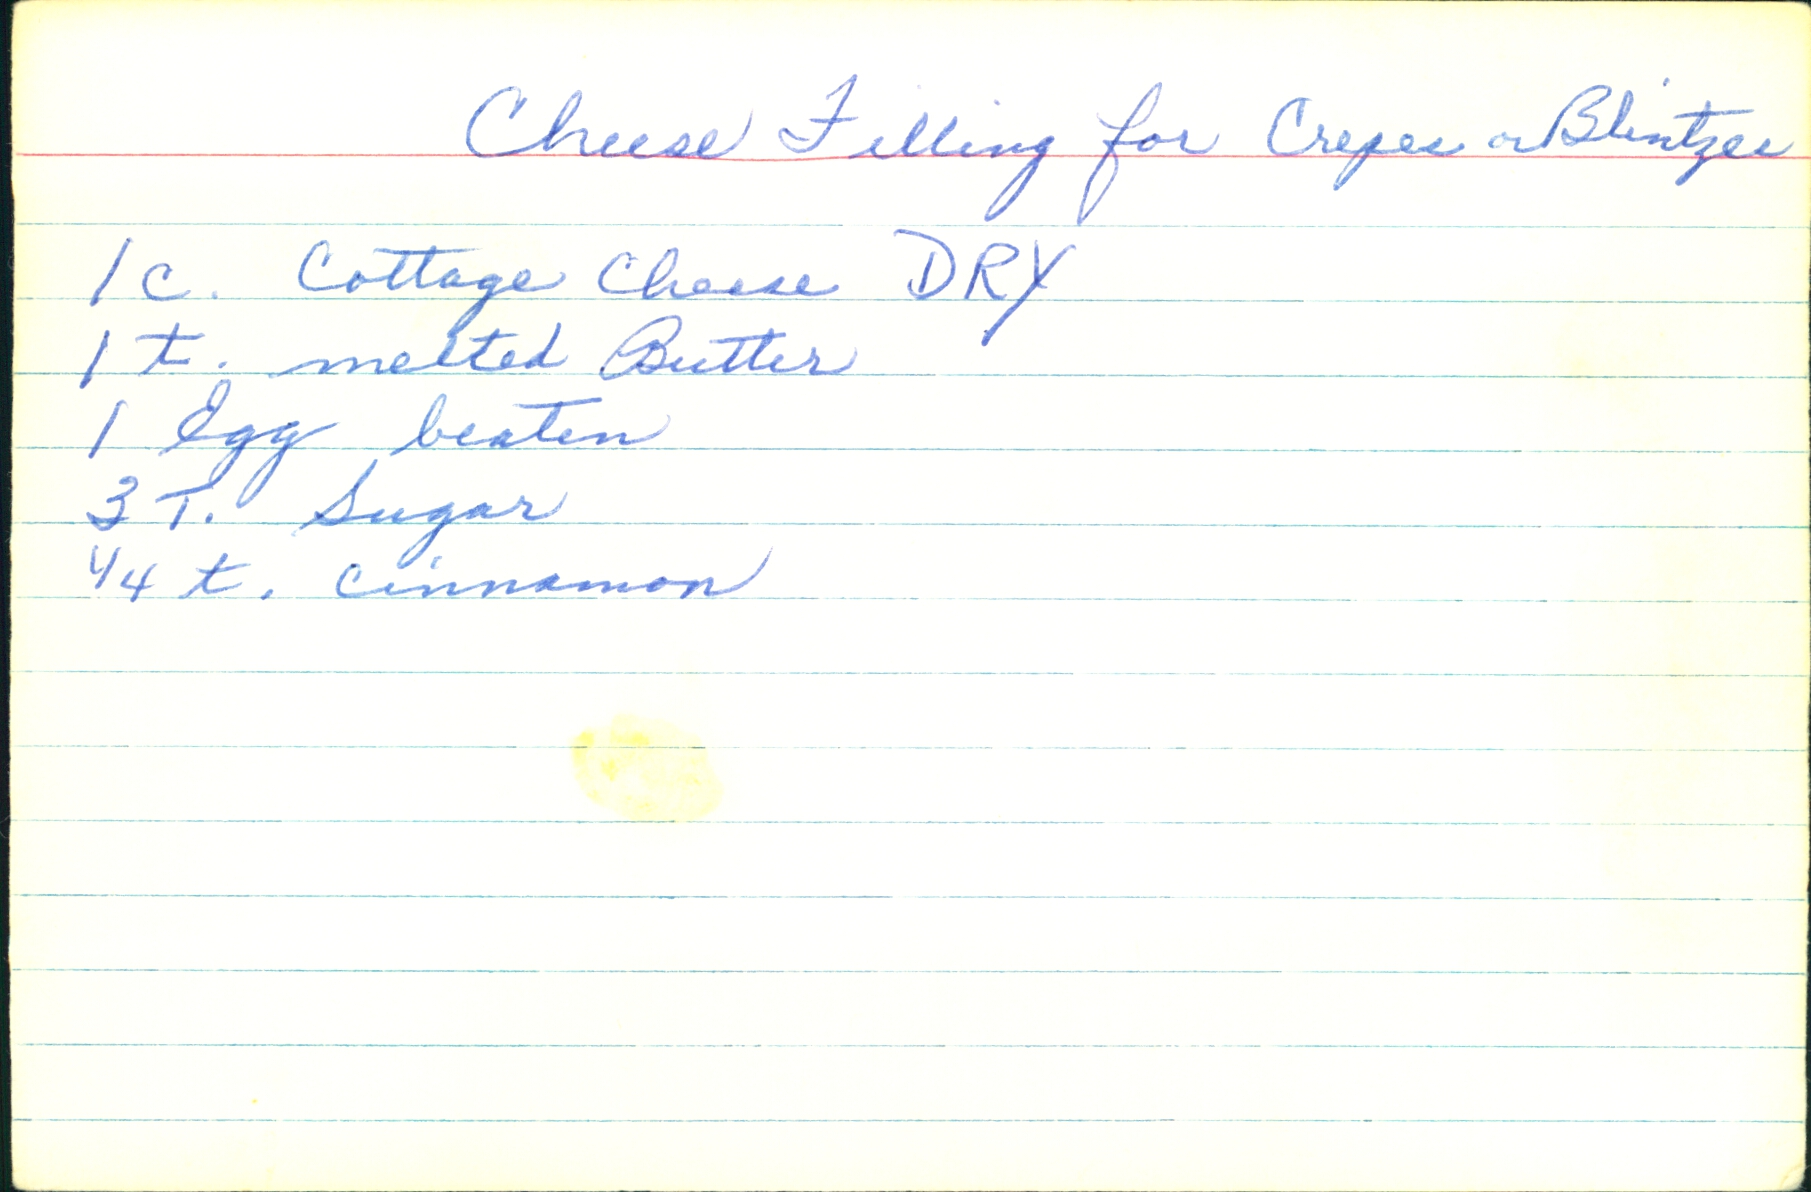 Cheese Filling for Crepes or Blintzes
1 c. Cottage Cheese DRY
1 t. melted Butter
1 Egg beaten
3 T. Sugar
1/4 t. cinnamon